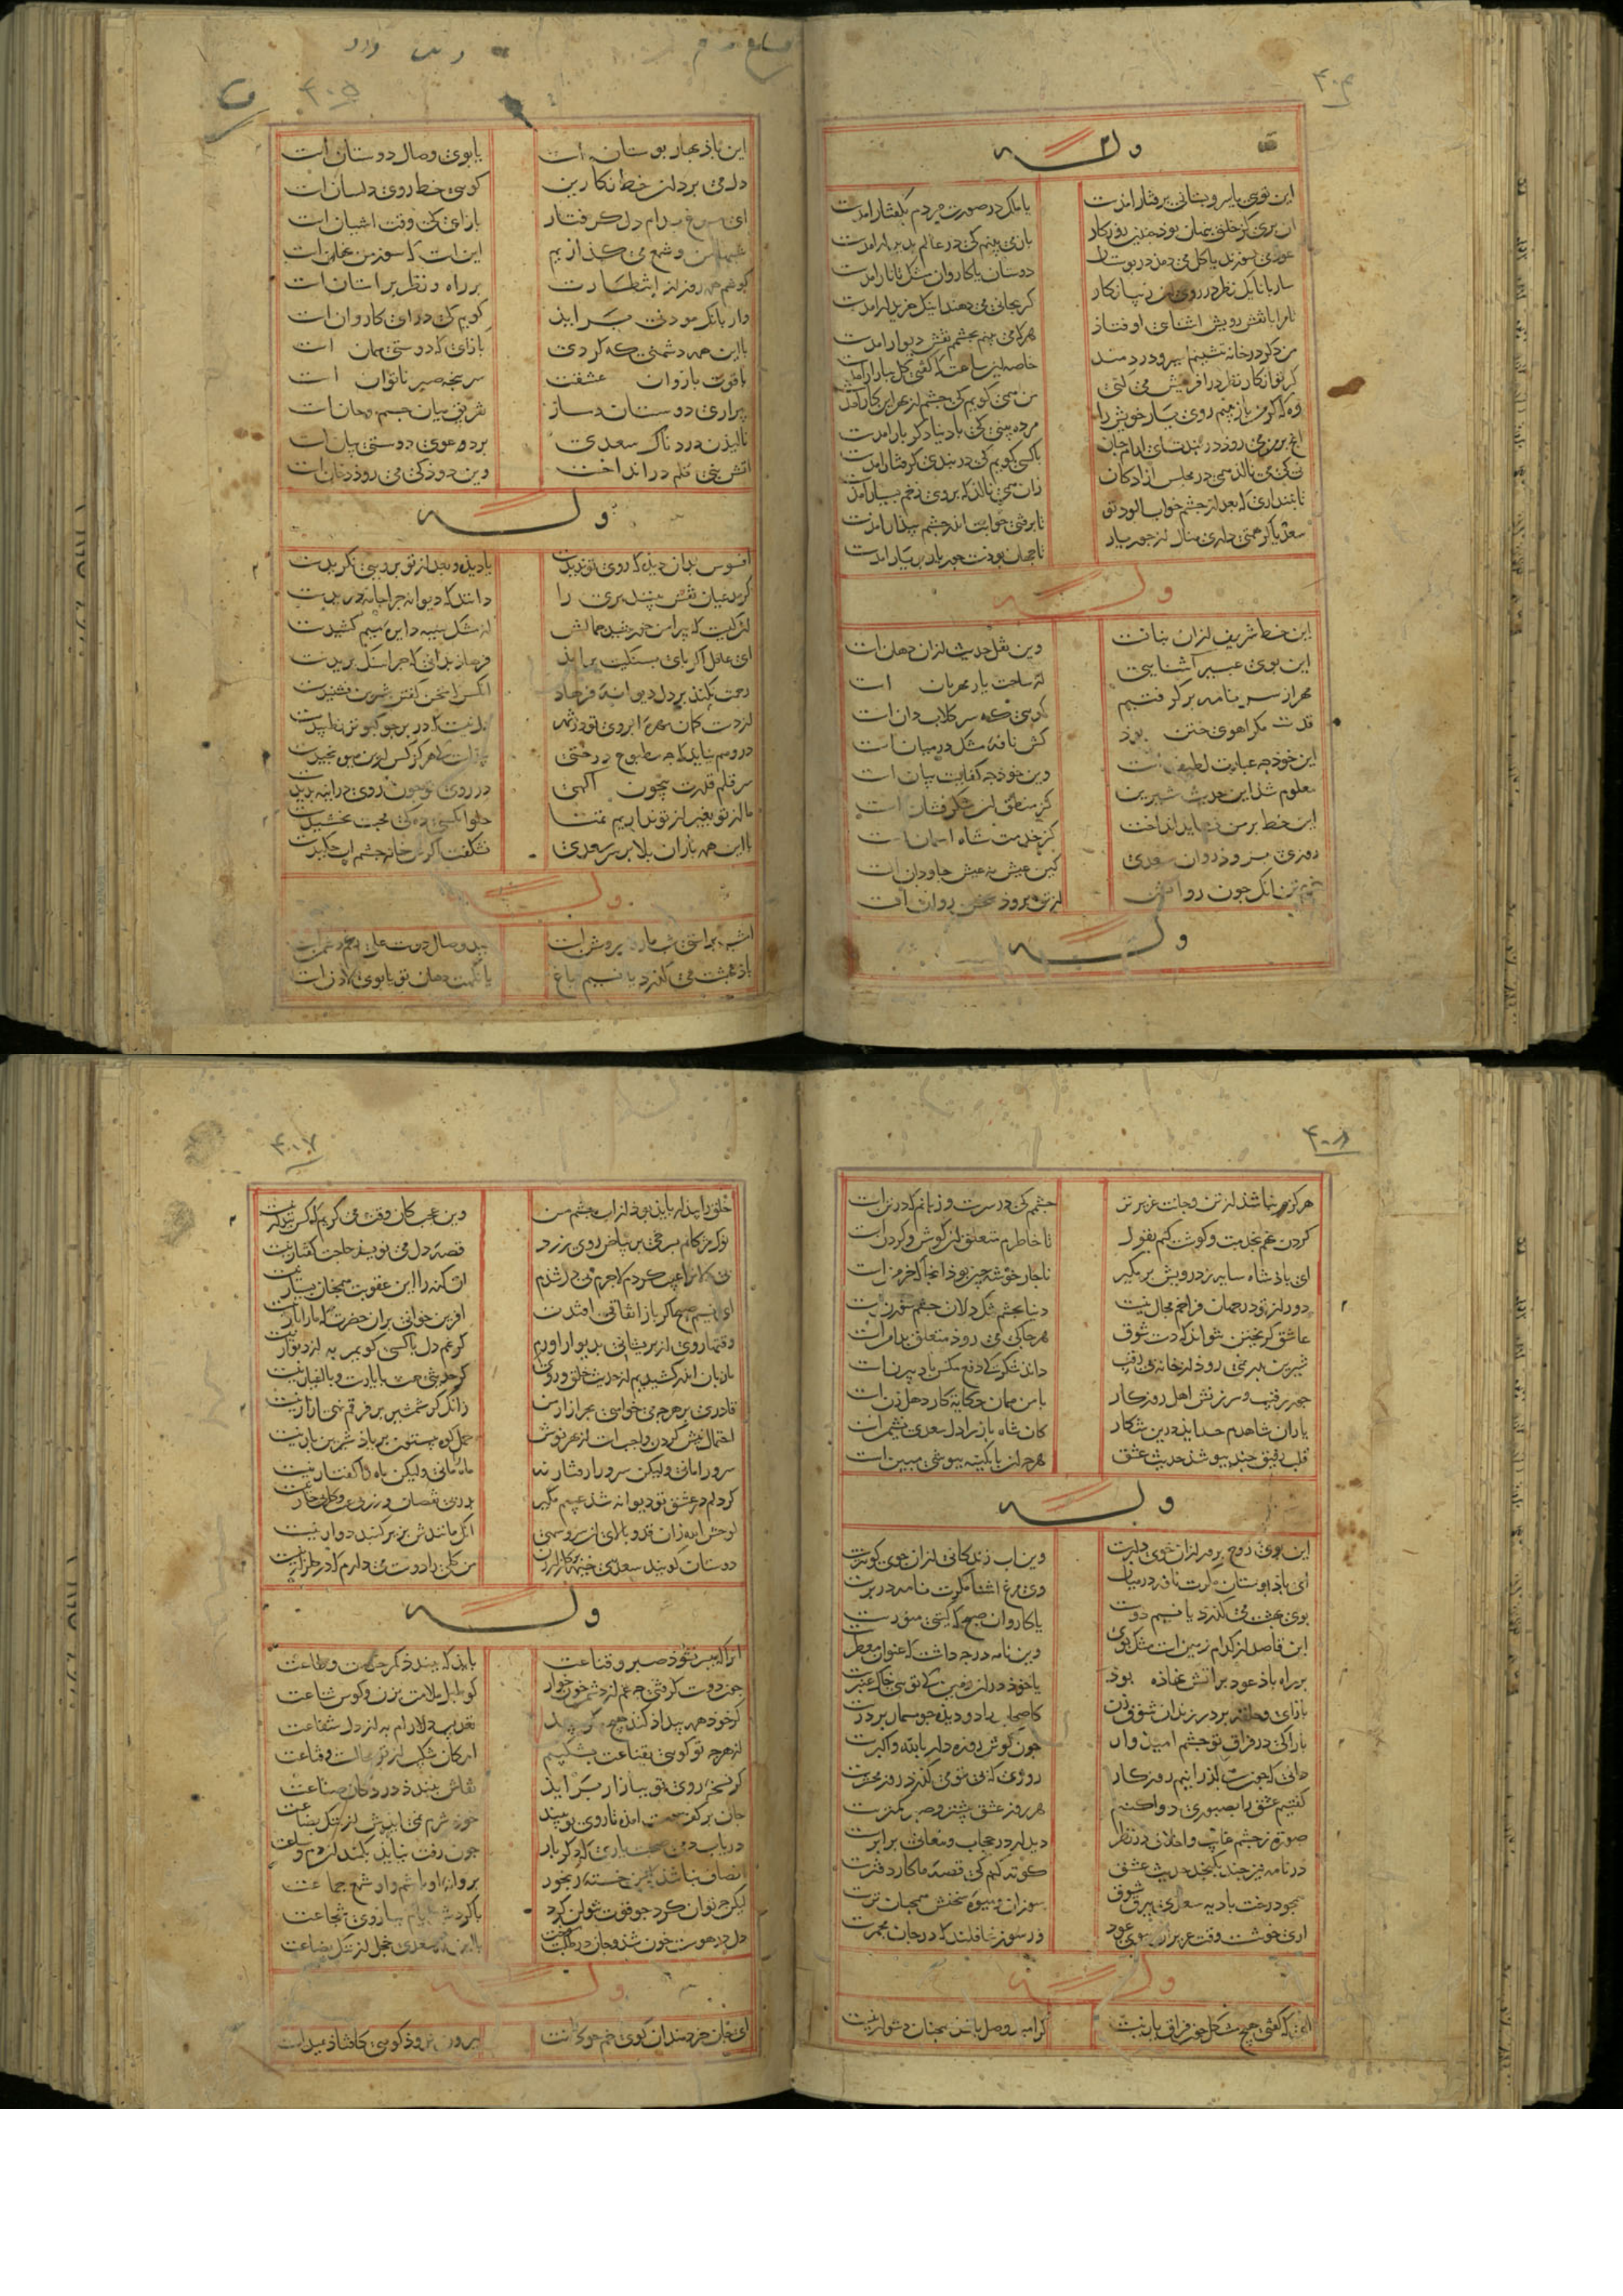 ۴۰۴
وله
این توی یا سرو بستانی برفتار امدست
یا ملک در صورت مردم بگفتار امدست
ان بری کز خلق بنهان بود جندین روزکار
باز می بینم کی در عالم بدیدار امدست
عود می سوزند یا کل می دمد در بوستان
دوستان یا کاروان مشک تاتار امدست
ساربانا یک نظر در روی ان زیبا نکار
کر بجانی می دهند اینک خریدار امدست
تا مرا با نقش رویش اشنای اوفتاذ
هرکا می بینم بجشمم نقش دیوار امدست
من دکر در خانه ننشینم اسیر و دردمند
خاصه این ساعت که کفتی کل ببازار امدست
کر تو انکار نظر در افرینش می کنی
من همی کویم کی جشم از بهر این کار امدست
وه که کر من باز بینم روی یار خویش را
مرده بینی کی با دنیا دکر بار امدست
انج بر من می روذ در بندت ای ارام جان
با کسی کویم کی در بندی کرفتار امدست
نی کی می نالذ همی در مجلس ازادکان
زان همی نالذ که بر وی زخم بسیار امدست
تا نبنداری که بعد از جشم خواب الود تو
تا برفتی خوابم اندر جشم بیذار امدست
سعدیا کر همتی داری منال از جور یار
تا جهان بودست جور یار بر یار امدست
وله
این خط شریف از ان بنانست
وین نقل حدیث از ان دهان است
این بوی عبیر آشنایی
از ساحت یار مهربان است
مهر از سر نامه برکرفتیم
کویی که سر کلابدان است
قاصد مکر اهوی ختن بوذ
کش نافه مشک در میان است
این خوذ جه عبارت لطیف است
وین خوذ جه کفایت بیان است
معلوم شذ این حدیث شیرین
کز منطق ان شکر فشان است
این خط بزمین نشاید انداخت
کز جانب شاه اسمان است
روزی بروذ روان سعدی
کین عیش نه عیش جاودان است
خرم تن انک جون روانش
از تن بروذ سخن روان است
وله
۴۰۵
این باذ بهار بوستان است
یا بوی وصال دوستان است
دل می برد ان خط نکارین
کویی خط روی دلستان است
ای مرغ بدام دل کرفتار
باز ای کی وقت اشیان است
شبها من و شمع می کذازیم
این است کا سوز من نهان است
کوشم همه روز از انتظارت
بر راه و نظر بر استان است
ور بانک موذنی براید
کویم کی درای کاروان است
با این همه دشمنی که کردی
باز ای کا دوستی همان است
با قوت بازوان عشقت
سربنجه صبر ناتوان است
بیزاری دوستان دمساز
تفریق میان جسم و جان است
نالیذن دردناک سعدی
بر دعوی دوستی بیان است
اتش بنی قلم در انداخت
وین دوذ کی می روذ دخان است
وله
افسوس بران دیذه کا روی تو ندیدست
یا دیذه و بعد از تو برویی نکریدست
کر مدعیان نقش ببینند بری را
دانند کا دیوانه جرا جامه دریدست
ان کیست کا بیرامن خورشید جمالش
از مشک سیه دایره نیم کشیدست
ای عاقل اکر بای بسنکیت براید
فرهاذ بدانی که جرا سنک بریدست
رحمت نکند بر دل بیجاره فرهاد
انکس کا سخن کفتن شیرین نشنیدست
از دست کمان مهره ابروی تو در شهر
دل نیست کا در بر جو کبوتر نطپیدست
در وهم نیاید کا جه مطبوع درختی
بیذاست کا هرکز کس ازین میوه نجیدست
سر قلم قدرت بیجون الهی
در روی تو جون روی در ایینه بدیدست
ما از تو بغیر از تو نداریم تمنا
حلوا بکسی ده کی محبت نجشیدست
با این همه باران بلا بر سر سعدی
نشکفت اکرش خانه جشم اب جکیدست
وله
امشب براستی شب ما روز روشن است
عید وصال دوست علی رغم دشمن است
باذ بهشت می کذرد یا نسیم باغ
یا نکهت دهان تو یا بوی لاذن است
هرکز نباشذ از تن و جانت عزیزتر
جشمم کی در سرست و روانم که در تن است
کردن نهم بخدمت و کوشت کنم بقول
تا خاطرم معلق ان کوش و کردن است
ای باذشاه سایه ز درویش بر مکیر
ناجار خوشه جین بوذ انجا که خرمن است
دور از تو در جهان فراخم مجال نیست
دنیا بجشم تنک دلان جشم سوزن است
عاشق کریختن نتواند که دست شوق
هرجا کی می روذ متعلق بدامن است
شیرین بدر نمی روذ از خانه بی رقیب
داند شکر که دفع مکس باذبیزن است
جور رقیب و سرزنش اهل روزکار
با من همان حکایت کاو دهل زن است
بازان شاهدم جه اید درین شکار
کان شاه باز را دل سعدی نشیمن است
قلب رقیق جند ببوشذ حدیث عشق
هرج ان بابکینه ببوشی مبین است
وله
این بوی روح برور از ان خوی دلبرست
وین اب زندکانی از ان حوض کوثرست
ای باذ بوستان مکرت نافه در میان
وی مرغ اشنا مکرت نامه در برست
بوی بهشت می کذرد یا نسیم دوست
یا کاروان صبح که کیتی منورست
این قاصد از کدام زمین است مشک بوی
وین نامه در جه داشت که عنوان معطرست
بر راه باذ عود بر اتش نهاذه بوذ
یا خوذ در ان زمین کی توی خاک عنبرست
باز ای و حلقه بر در رندان شوق زن
کاصحاب را دو دیذه جو مسمار بر درست
باز ای کی در فراق تو جشم امیدوار
جون کوش روزه دار بر الله اکبرست
دانی که جون همی کذرانیم روزکار
روزی که بی تو می کذرد روز محشرست
کفتیم عشق را بصبوری دوا کنیم
هر روز عشق بیشتر و صبر کمترست
صورت ز جشم غایب و اخلاق در نظر
دیدار در حجاب و معانی برابرست
در نامه نیز جند بکنجد حدیث عشق
کوته کنم کی قصه ما کار دفترست
همجو درخت بادیه سعدی ببرق شوق
سوزان و میوه سخنش همجنان ترست
اری خوشست وقت عزیزان ببوی عود
وز سوز غافلند که در جان مجمرست
وله
ای که کفتی هیج مشکل جون فراق یار نیست
کر امید وصل باشذ همجنان دشوار نیست
۴۰۷
خلق را بیدار بایذ بود از اب جشم من
وین عجب کان وقت می کریم که کس بیدار نیست
نوک مژکانم بسرخی بر بیاض روی زرد
قصه دل می نویسد حاجت کفتار نیست
بی دلان را عیب کردم لاجرم بی دل شذم
ان کنه را این عقوبت همجنان بسیار نیست
ای نسیم صبح اکر باز اتفاقی افتدت
افرین خوانی بران حضرت که ما را بار نیست
وقتها روی از بریشانی بدیوار اورم
کر غم دل با کسی کویم به از دیوار نیست
ما زبان اندر کشیدیم از حدیث خلق و روی
کر حدیثی هست با یارست و با اغیار نیست
قادری بر هرج می خواهی بجز ازار من
زانک کر شمشیر بر فرقم نهی ازار نیست
احتمال نیش کردن واجب است از بهر نوش
حمل کوه بیستون بر یاذ شیرین بار نیست
سرو را مانی ولیکن سرو را رفتار نه
ماه را مانی ولیکن ماه را کفتار نیست
کر دلم در عشق تو دیوانه شد عیبم مکیر
بدر بی نقصان و زر بی عیب و کل بی خار نیست
لوحش الله زان قد و بالای ان سرو سهی
انک مانندش بزیر کنبد دوار نیست
دوستان کویند سعدی خیمه بر کلزار زن
من کلی را دوست می دارم که در کلزار نیست
وله
انرا که میسر نشوذ صبر و قناعت
بایذ که ببندذ کمر خدمت و طاعت
جون دوست کرفتی جه غم از دشمن خون خوار
کو طبل ملامت بزن و کوس شناعت
کر خوذ همه بیداذ کند هیج مکویید
تعذیب دلارام به از ذل شفاعت
از هرج تو کویی بقناعت بشکیبم
امکان شکیب از تو محالست و قناعت
کر نسخه روی تو ببازار براید
نقاش ببندذ در دکان صناعت
جان بر کف دست امده تا روی تو بیند
خوذ شرم نمی ایدش از ننک بضاعت
دریاب دمی صحبت یاری که دکر بار
جون رفت نیاید بکمند ان دم و ساعت
انصاف نباشذ که من خسته رنجور
بروانه او باشم و او شمع جماعت
لیکن جه توان کرد جو قوت نتوان کرد
با کردش ایام ببازوی شجاعت
دل در هوست خون شذ و جان در طلبت سوخت
با این همه سعدی خجل از ننک بضاعت
وله
ای جان خردمندان کوی خم جوکانت
بیرون نروذ کویی کافتاذ بمیدانت